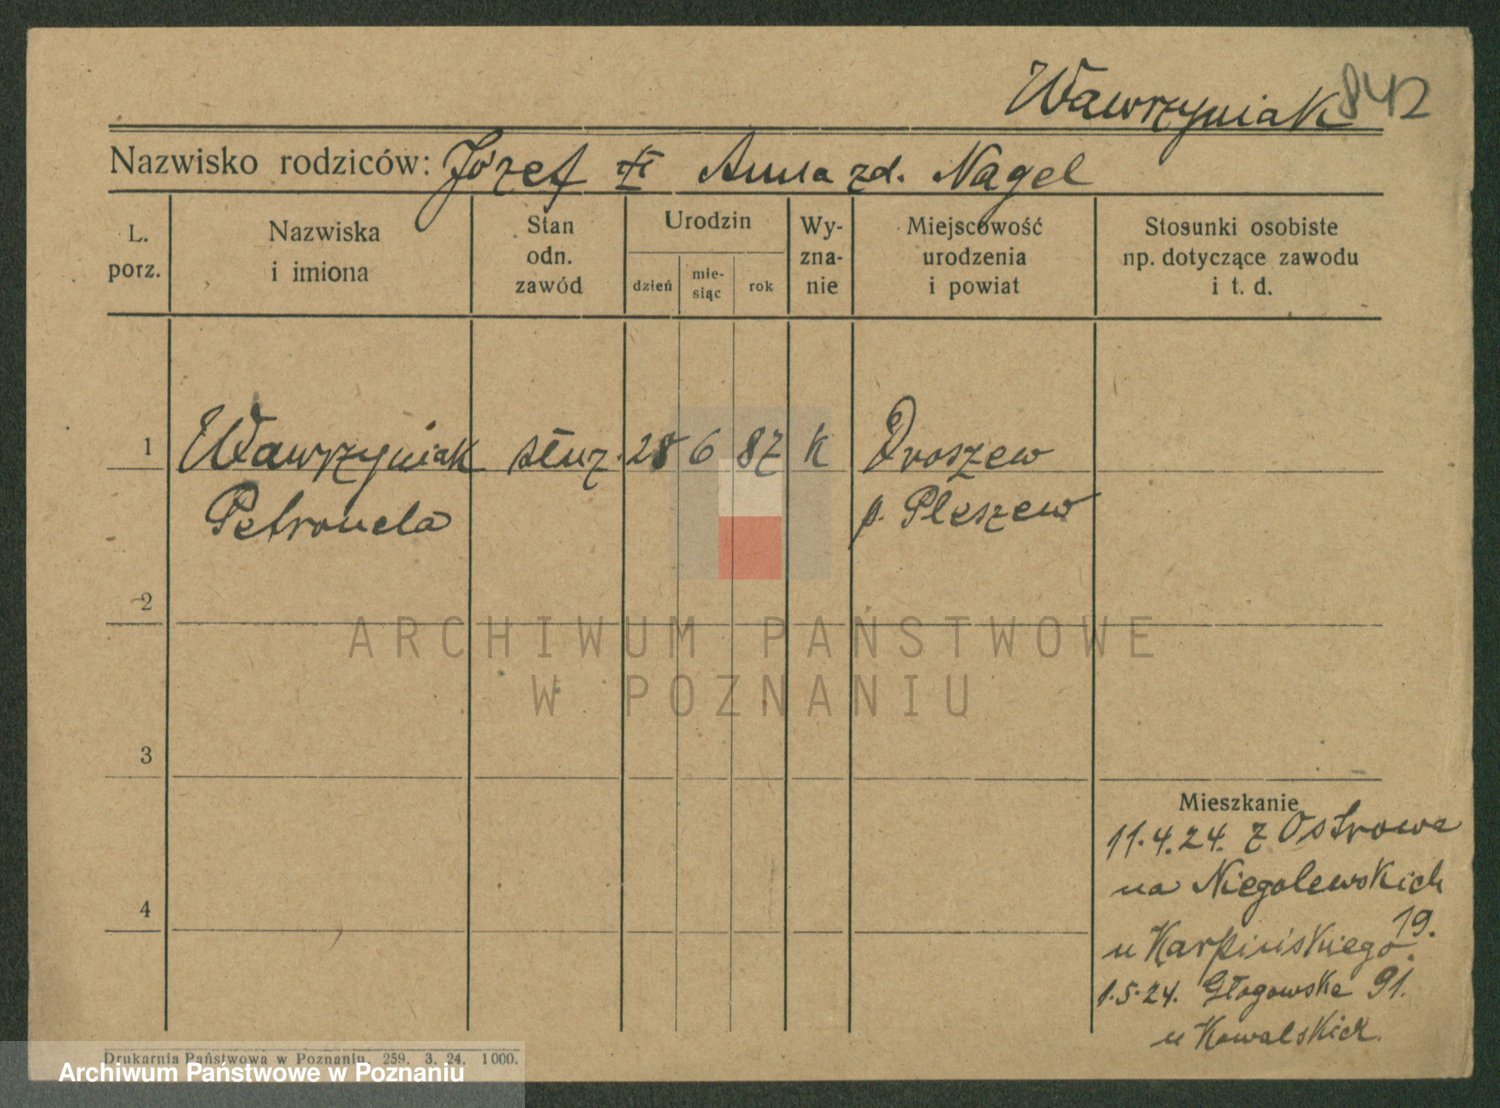 Wawrzyniak 842
Nazwisko rodziców: Józef Anna zd. Nagel
L. porz.
Nazwiska i imiona
Stan odn. zawód
Urodzin
dzień
mie-
siąc
rok
Wy-
zna-
nie
Miejscowość
urodzenia
i powiat
Stosunki osobiste
np. dotyczące zawodu
i t. d.
1 Wawrzyniak służ. 28 6 87 K Droszew
Petronela p. Pleszew
2
ARCHIWUM PAŃSTWOWE
W POZNANIU
3
Mieszkanie
11.4.24. z Ostrowa
na Niegolewskich
19.
4
u Karpińskiego.
1.5.24. Głogowska 91.
u Kowalskich.
Drukarnia Państwowa w Poznaniu. 259. 3. 24. 1000.
Archiwum Państwowe w Poznaniu